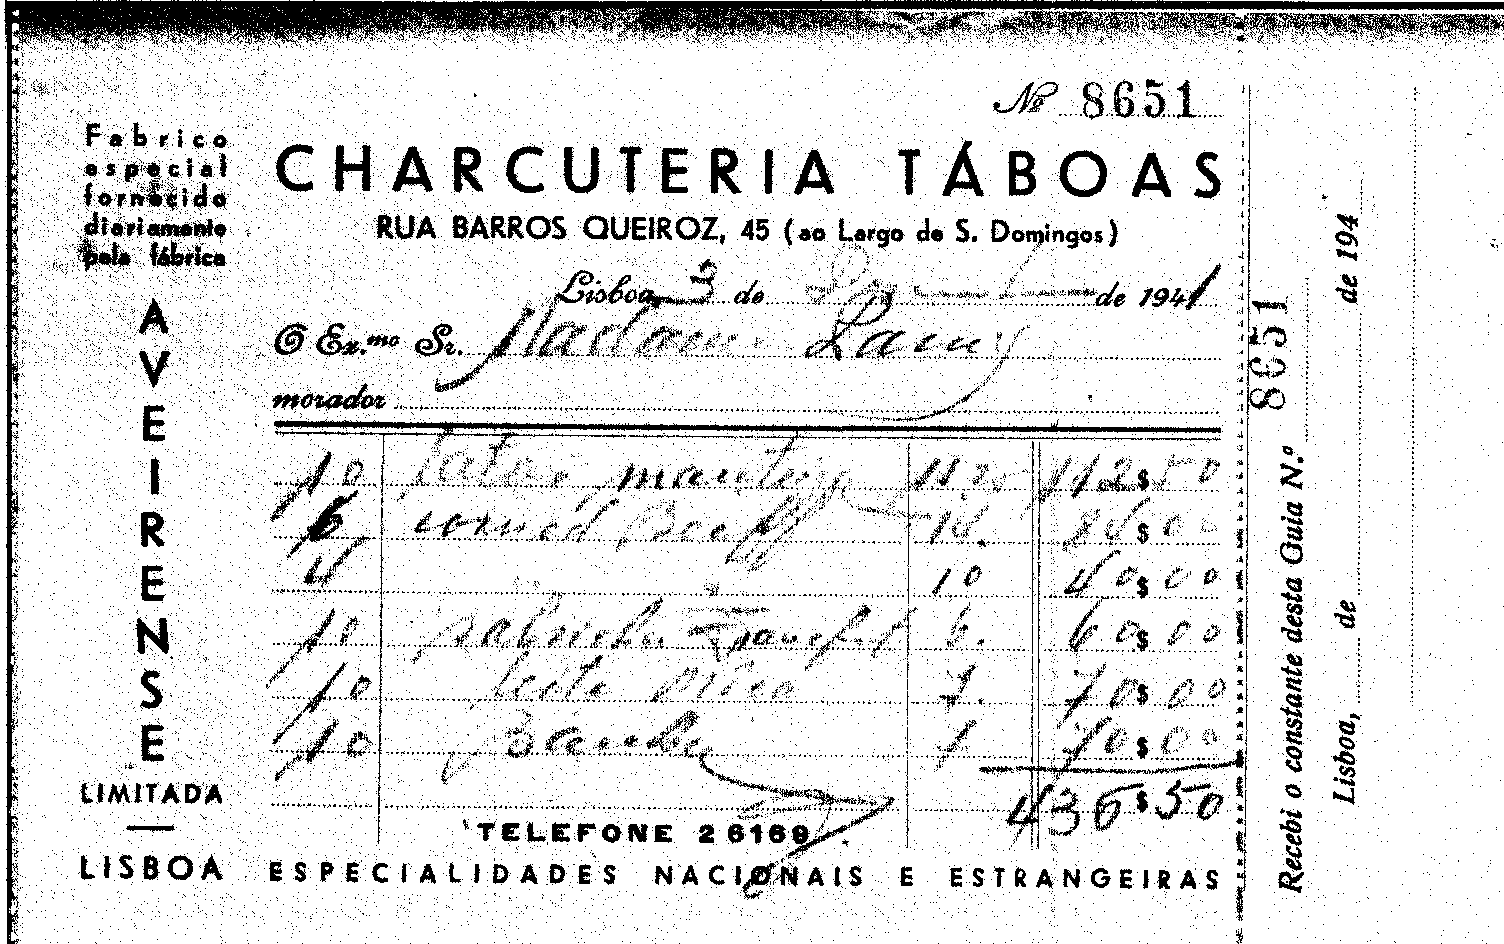 Nº 8651
Fabrico
especial
fornecido
diariamente
pela fábrica
AVEIRENSE
LIMITADA
LISBOA
CHARCUTERIA TÁBOAS
RUA BARROS QUEIROZ, 45 (ao Largo de S. Domingos)
Lisboa, 3 de de 1941
O Ex.mo Sr. Madame
morador
10 latas manteiga 11.25 112$50
6 corned Beef 14. 84$00
4 10 40$00
10 salsichas Francfort 6. 60$00
10 leite 7. 70$00
10 Banha 7 70$00
436$50
TELEFONE 26169
ESPECIALIDADES NACIONAIS E ESTRANGEIRAS
8651
Recebi o constante desta Guia N.º
Lisboa, de de 194